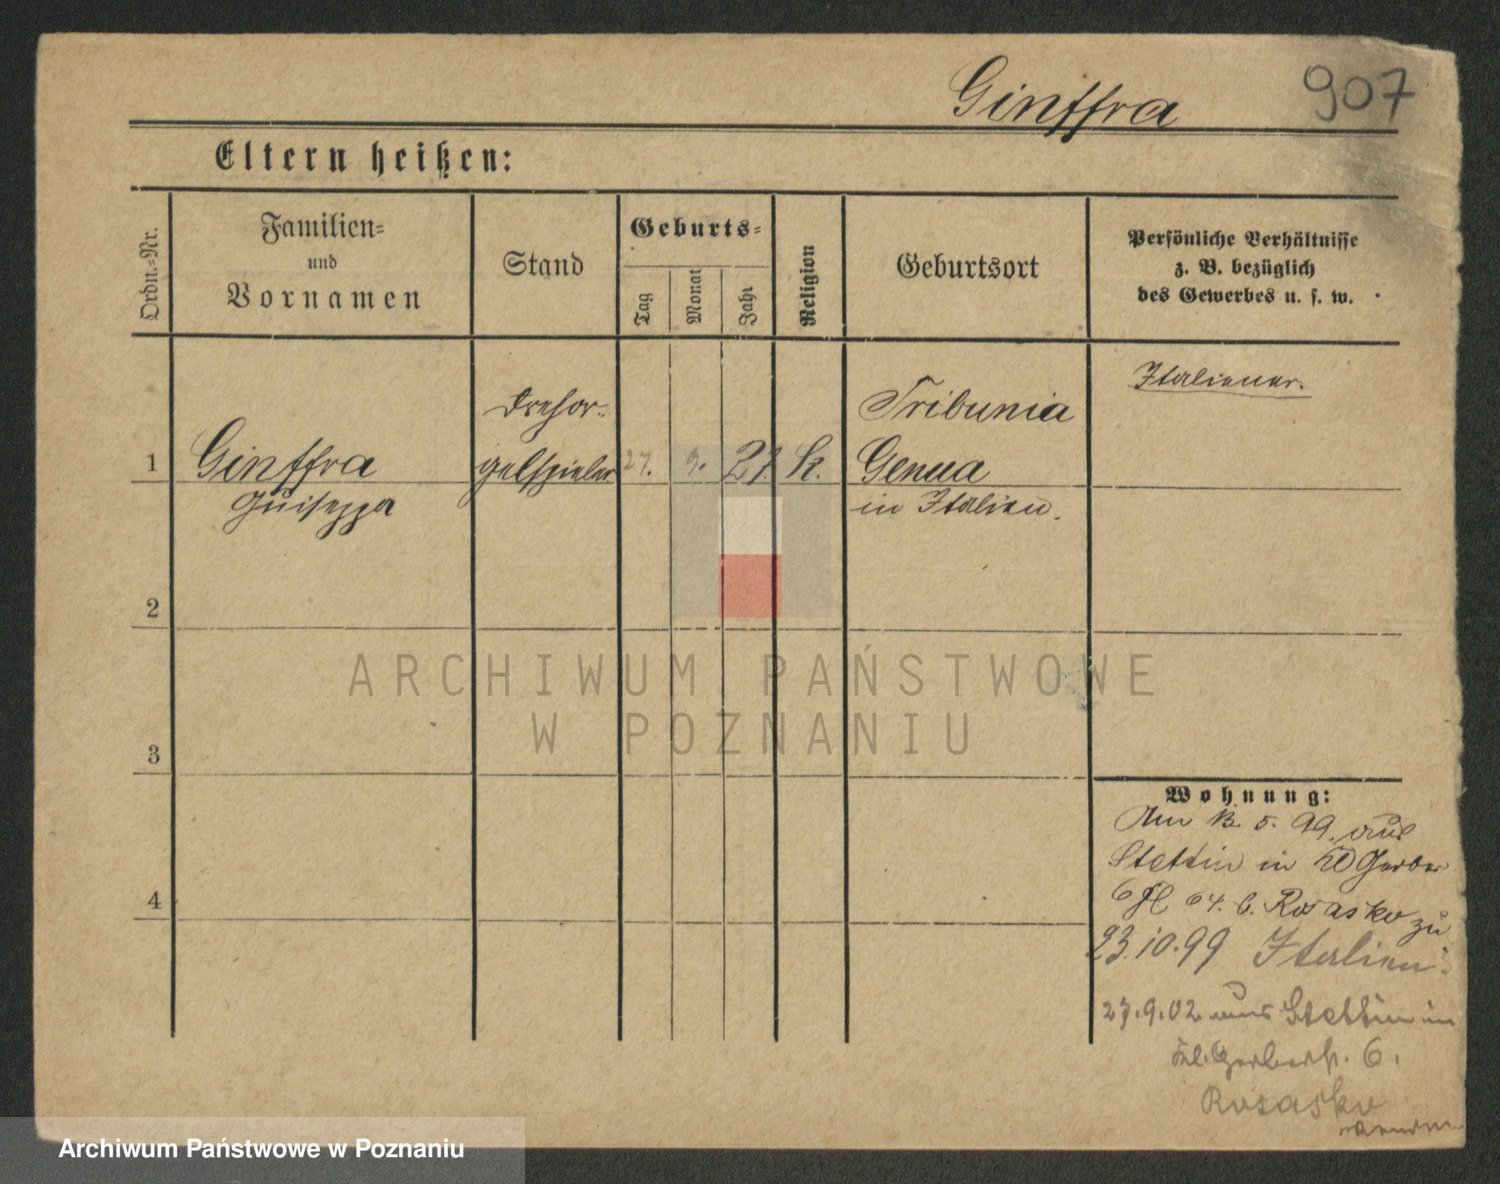 Ginffra
907
Eltern heißen:
Ordn.-Nr.
Familien-
und
Vornamen
Stand
Geburts-
Tag
Monat
Jahr
Religion
Geburtsort
Persönliche Verhältnisse
z. B. bezüglich
des Gewerbes u. s. w.
Italiener.
Drehor-
Tribunia
1 Ginffra gelspieler 27. 9. 27. k. Genua
Guiseppa in Italien.
2
3
4
ARCHIWUM PAŃSTWOWE
W POZNANIU
Wohnung:
Am 5. 99. aus
Stettin in Gerber
6 b. Rosasko zu
23.10.99 Italien.
27.9.02 aus Stettin in
Kl. Gerberstr. 6.
Rosasko
Archiwum Państwowe w Poznaniu